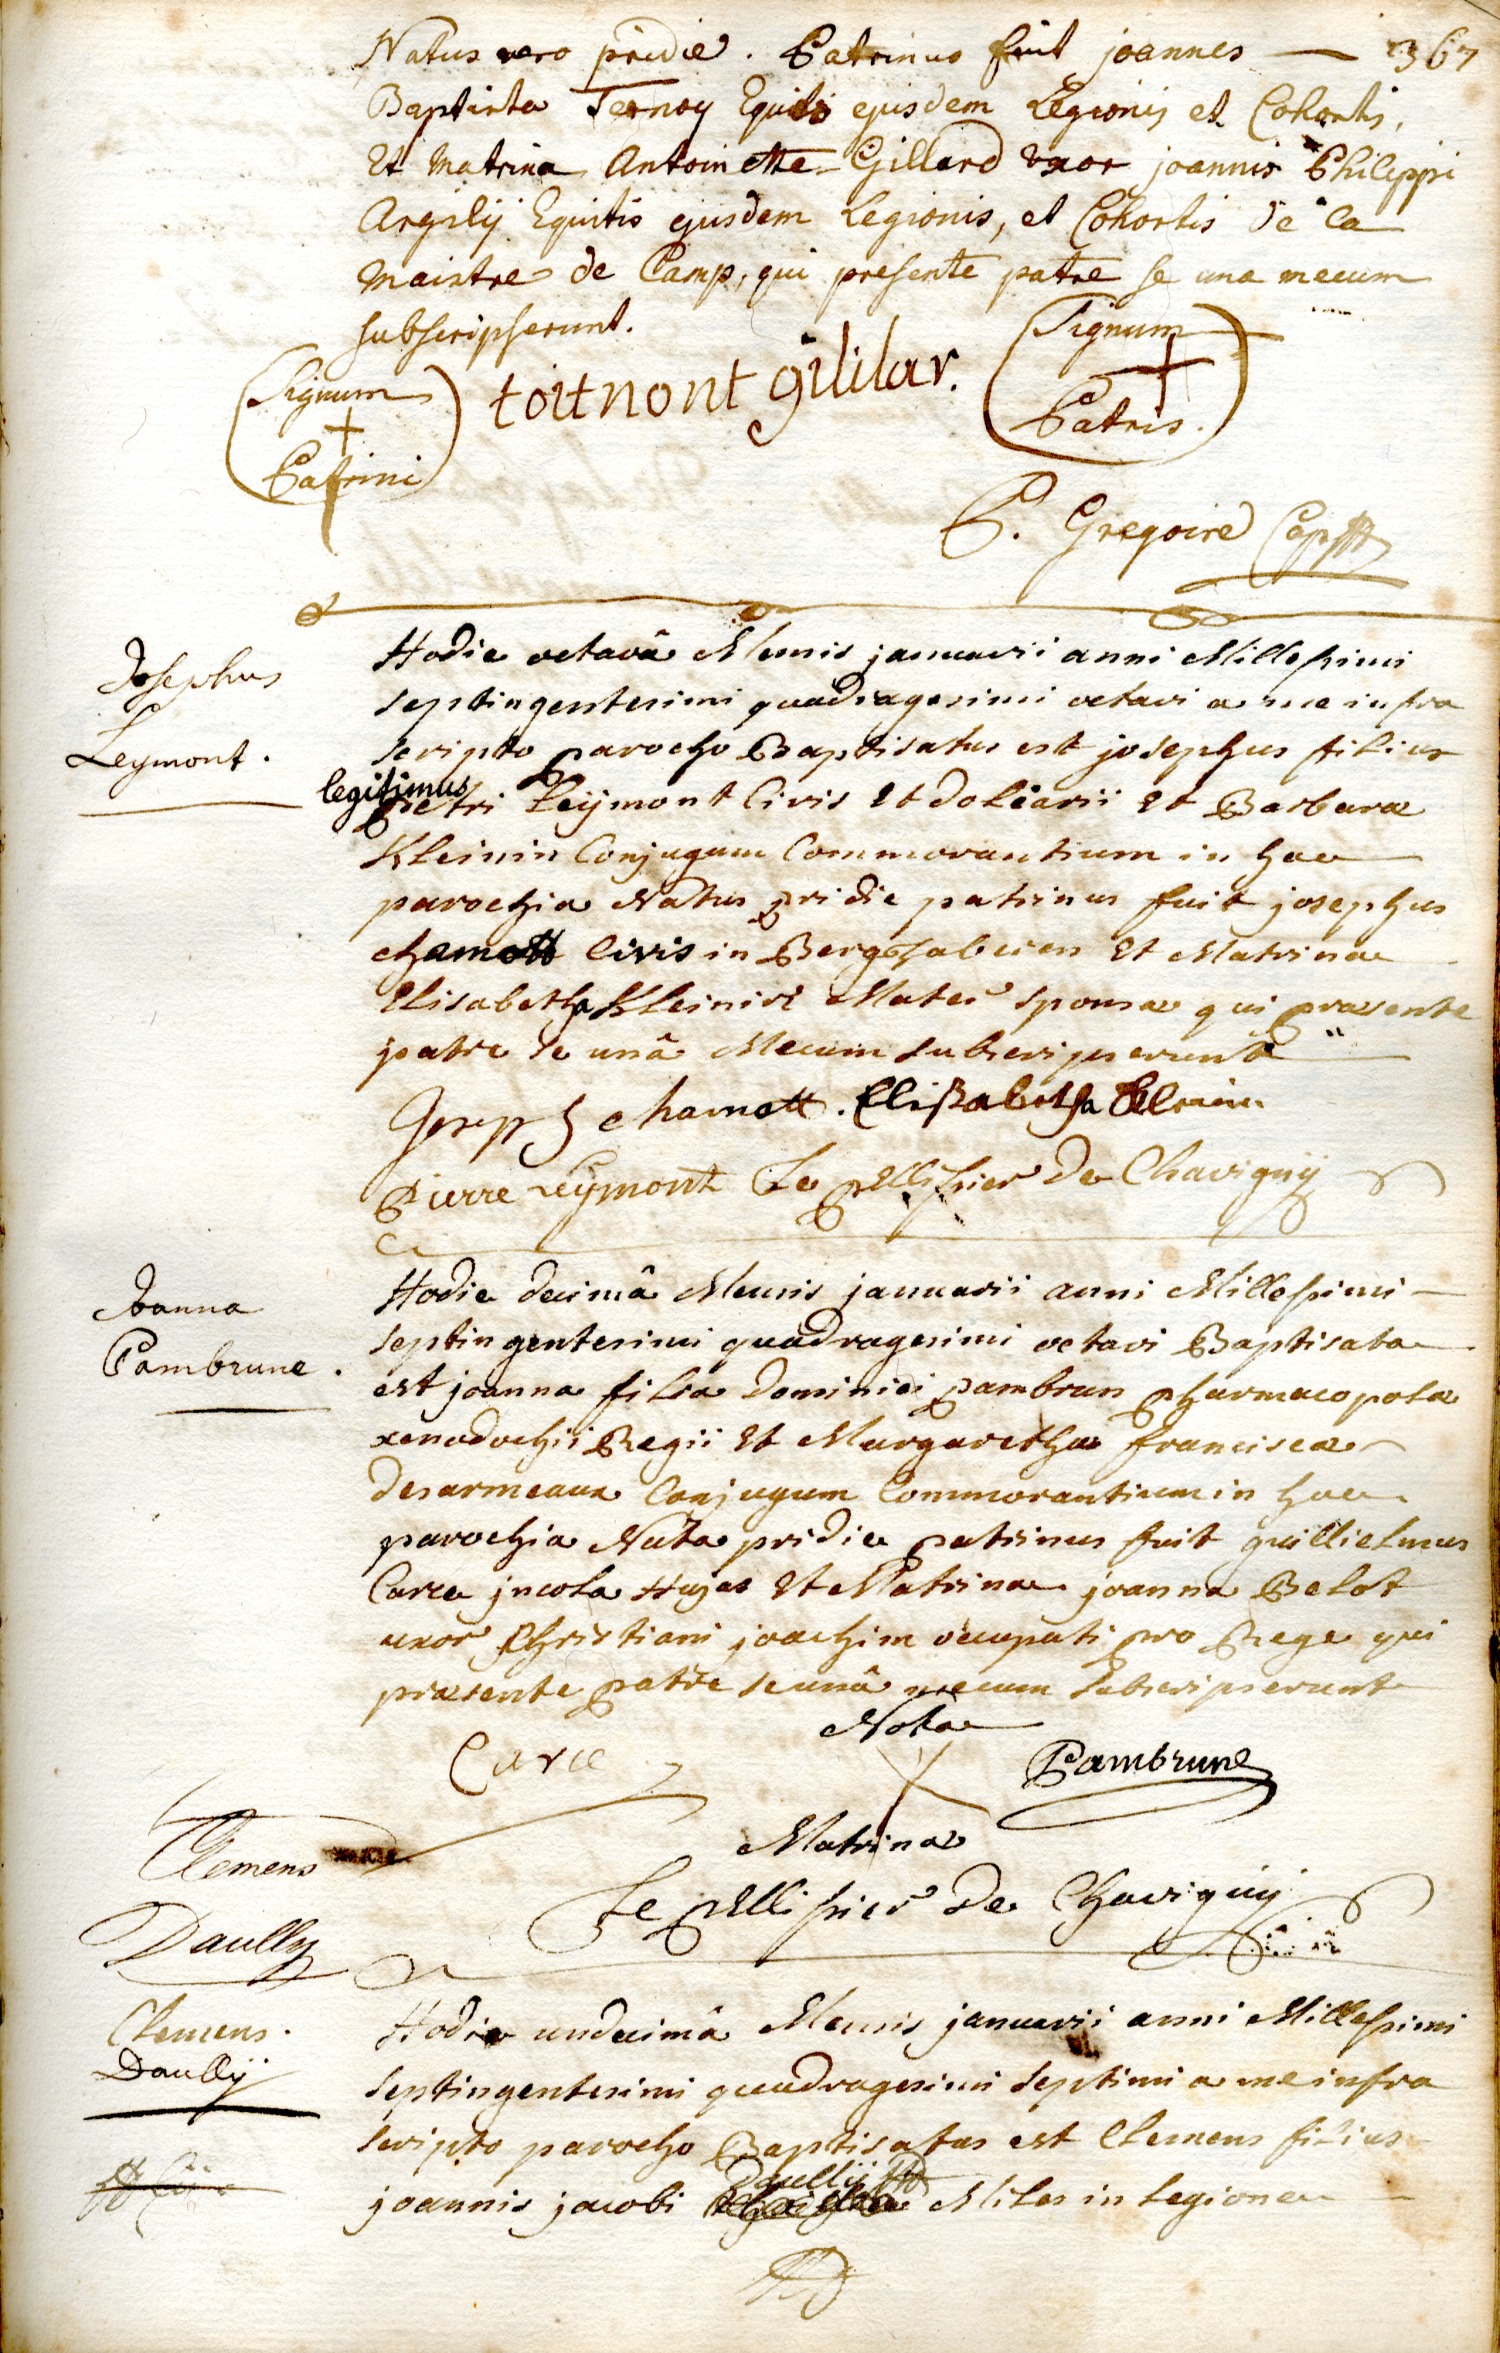 367
Natus vero pridie. Patrinus fuit joannes
Baptista Ternoy Equitis ejusdem Legionis et Cohortis,
Et Matrina Antoinette Gillard uxor joannis Philippi
Argilij Equitis ejusdem Legionis, et Cohortis de la
Maistre de Camp, qui presente patre se una mecum
subscripserunt.
Signum
Patrini
toitnont gililar.
Signum
Patris.
P. Gregoire Cap
Josephus
Leymont.
Hodie octavâ Mensis januarii anni Millessimi
septingentesimi quadragesimi octavi a me infra
scripto parocho Baptisatus est josephus filius
legitimus
petri Leijmont Civis Et doliarii Et Barbara
Kleinin Conjugum Commorantium in hac
parochia Natus pridie patrinus fuit josephus
chamott Civis in Bergzabern Et Matrina
Elisabetha Kleinin Mater sponsa qui præsente
patre se unâ Mecum subscripserunt
Joseph chamott. Elisabetha Kleinin
Pierre Leijmont Le pellissier De Chavignij
Joanna
Pambrune.
Hodie decimâ Mensis januarii anni Millessimi
septingentesimi quadragesimi octavi Baptisata
est joanna filia Dominici pambrun pharmacopola
xenodochii Regii Et Margaretha francisca
Desarmeaux Conjugum Commorantium in hac
parochia Nata pridie patrinus fuit guillielmus
Carce jncola Hujas Et Matrina joanna Belot
uxor Christiani joachim occupati pro Rege qui
præsente patre se unâ mecum subscripserunt
Nota
Carce
Pambrune
Matrina
Le pellissier De Chavignij
Clemens
Daully
Clemens.
Daullij
Hodie undecimâ Mensis januarii anni Millessimi
septingentesimi quadragesimi septimi a me infra
scripto parocho Baptisatus est Clemens filius
Daullij
joannis jacobi Miles in Legione